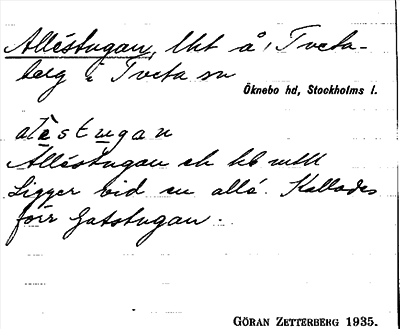 Alléstugan, lht å, Tveta-
berg i Tveta sn
Öknebo hd, Stockholms l.
alèstugan
Alléstugan
Ligger vid en allé. Kallades
förr Gatstugan.
GÖRAN ZETTERBERG 1935.